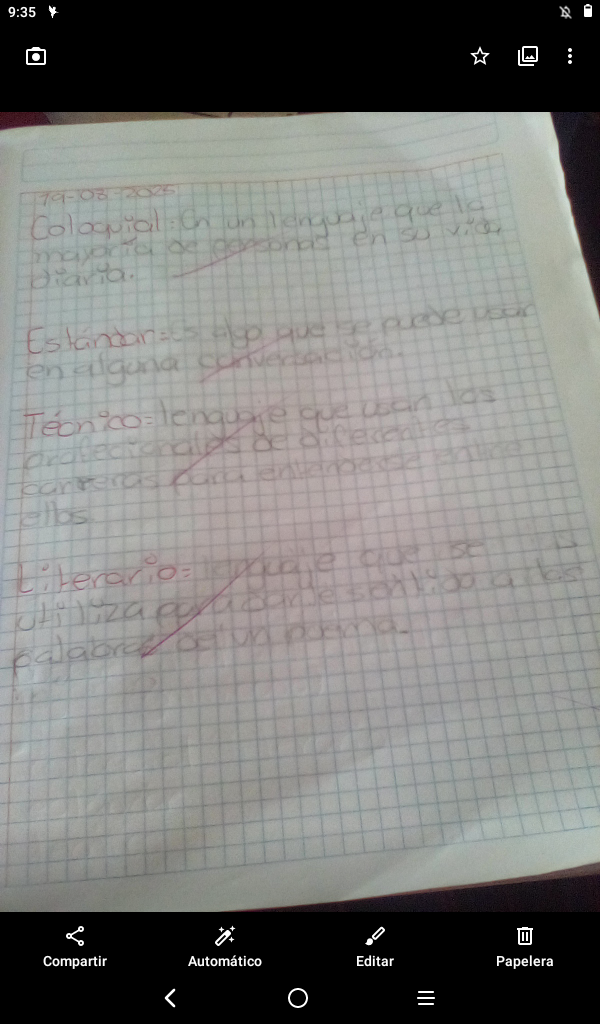 9:35
19-08-2025
Coloquial=En un lenguaje que la
mayoría de personas en su vida
diaria.
Estándar=Es algo que se puede usar
en alguna conversación.
Técnico=lenguaje que usan los
de diferentes
carreras para entenderse entre
ellos
Literario=lenguaje que se
utiliza para darle sentido a las
palabras de un poema.
Compartir
Automático
Editar
Papelera